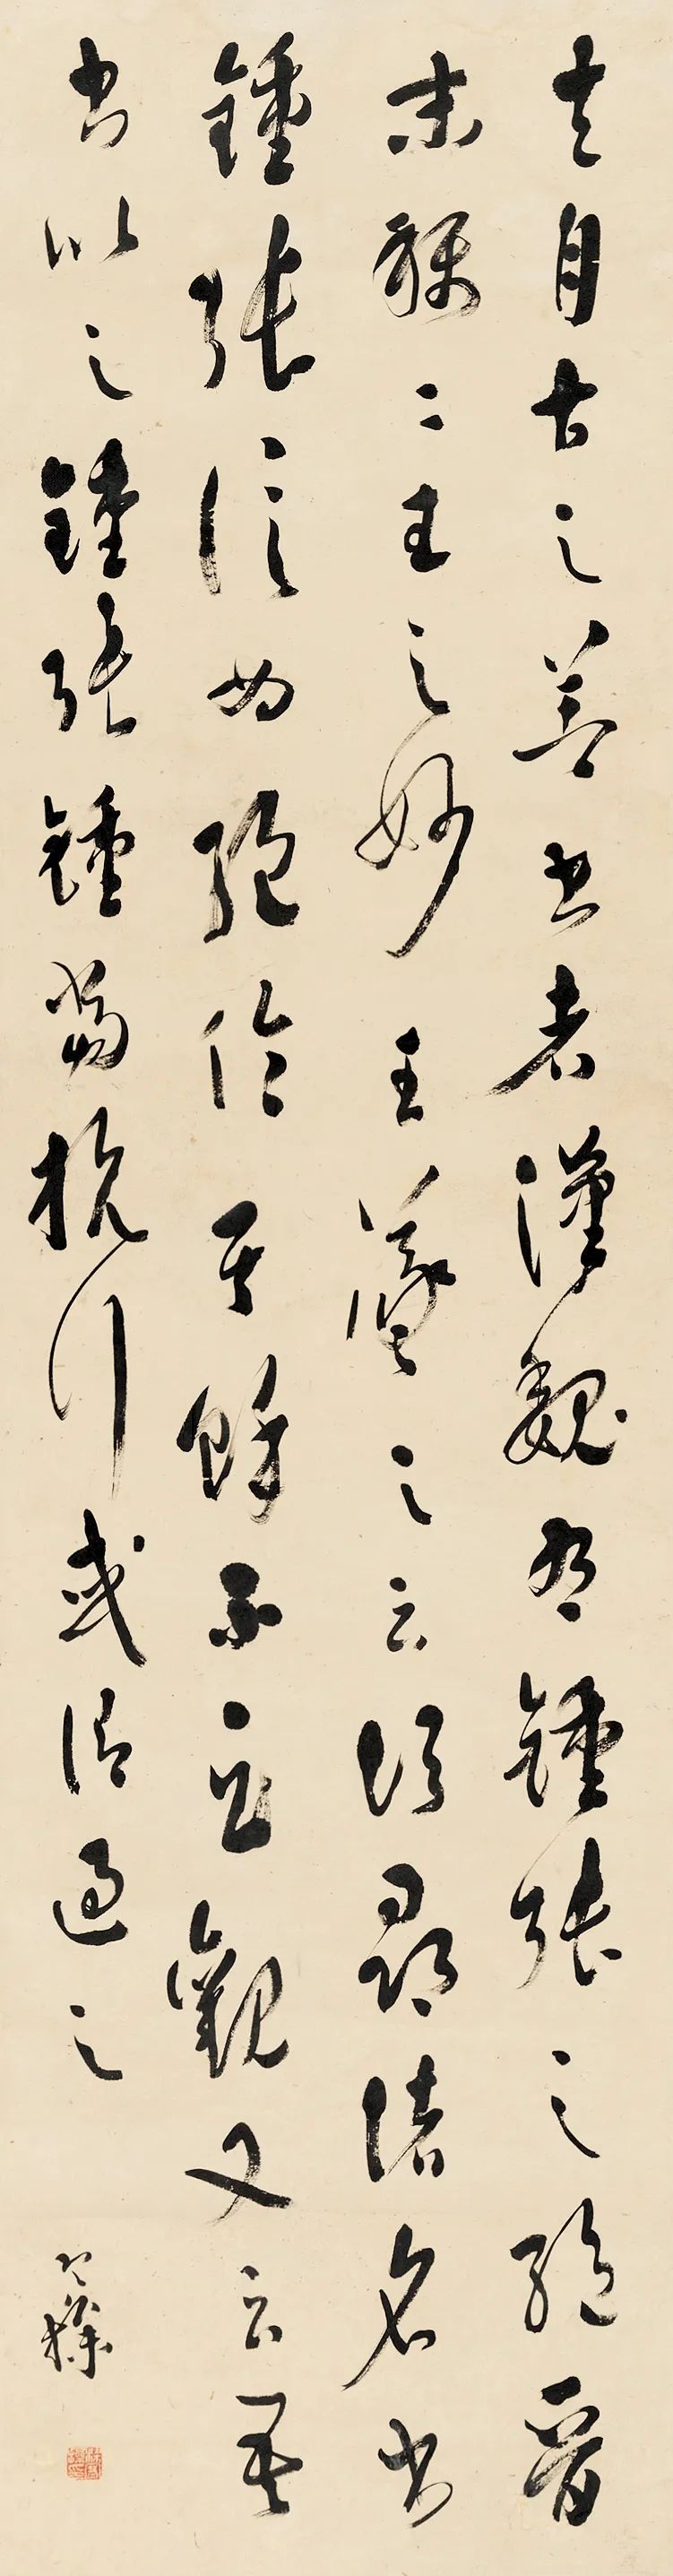 夫自古之善書者漢魏有鍾張之絕晉
末稱二王之妙王羲之云頃尋諸名書
鍾張信為絕倫其餘不足觀又云吾
書比之鍾張鍾當抗行或謂過之